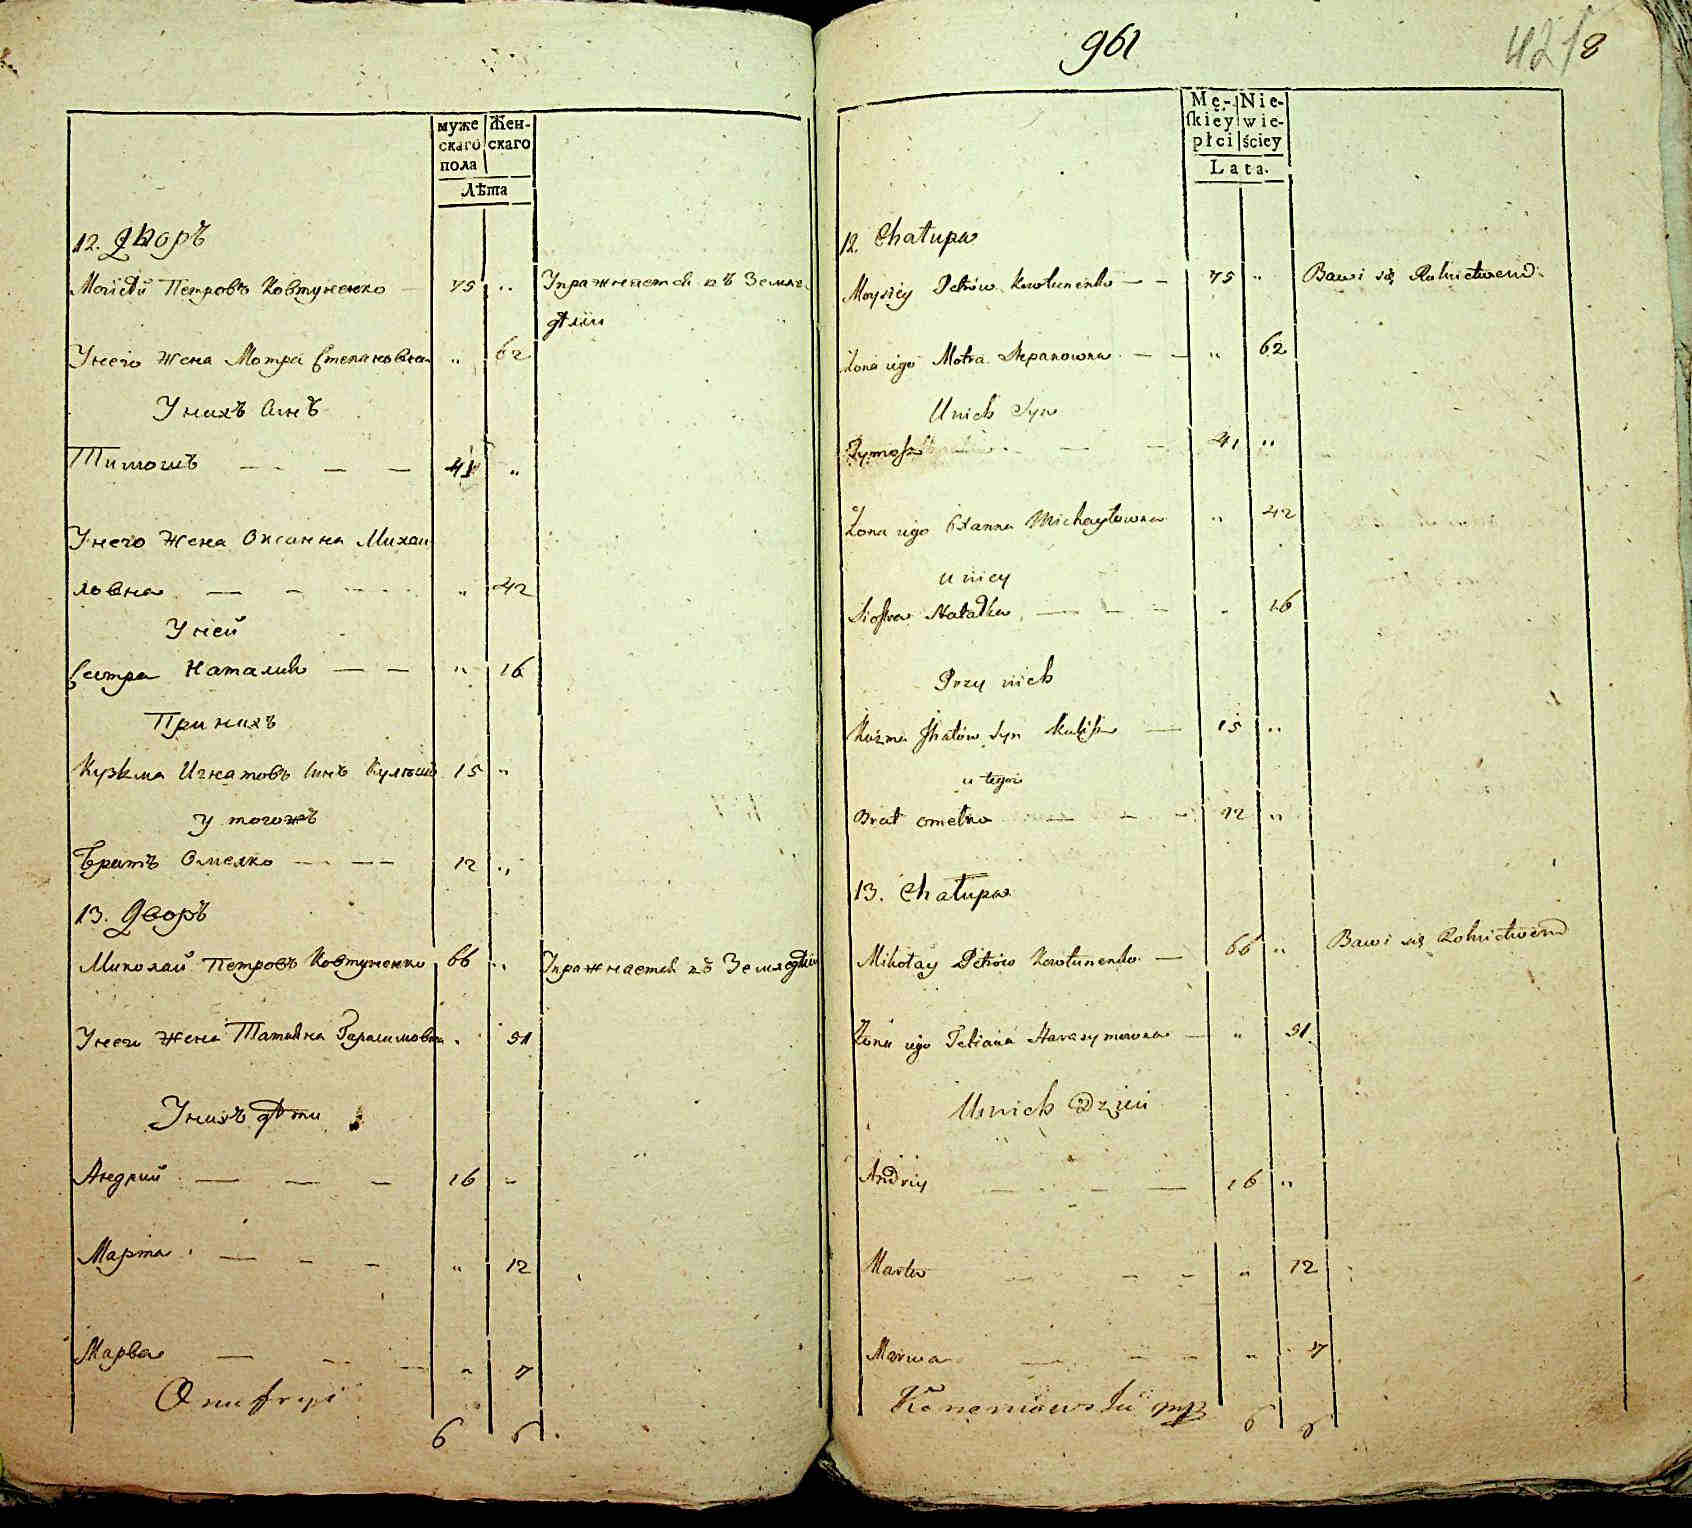 муже
скаго
пола
Жен-
скаго
Лѣта
12. Дворъ
Моисей Петровъ Ковтуненко — 75 „ Упражняется въ Земле
дѣлiи
У него жена Мотря Степановна „ 62
У нихъ Синъ
Тимошъ — — — 41 „
У него жена Оксинна Михаи
ловна — — „ 42
У ней
Сестра Наталия — — „ 16
При нихъ
Кузьма Игнатовъ Синъ Кулѣшъ 15 „
у тогожъ
Братъ Омелко — — 12 „
13. Дворъ
Миколай Петровъ Ковтуненко 66 „ Упражняется въ Земледѣлiи
У него жена Татияна Гарасимовна „ 51
У нихъ дѣти
Андрий — — — 16 „
Марта — — — „ 12
Марва — — — „ 7
Onufryi
6 6
961
4218
Mę-
skiey
płci
Nie-
wie-
ściey
Lata.
12. Chałupa
Moysiey Petrów Kowtunenko — — 75 „ Bawi się Rolnictwem
Żona iego Motra Stepanowna — — „ 62
U nich Syn
Tymosz — — 41 „
Żona iego Oxanna Michayłowna „ 42
u niey
Siostra Natalka — — — „ 16
Przy nich
Kuzma Ihnatów Syn Kulisz — 15 „
u tegoż
Brat Omelko — — — 12 „
13. Chałupa
Mikołay Petrów Kowtunenko — 66 „ Bawi się Rolnictwem
Żona iego Tetiana Harasymowna — „ 51
U nich Dzieci
Andriy — — — 16 „
Marta — — — „ 12
Marwa — — — „ 7
6 6